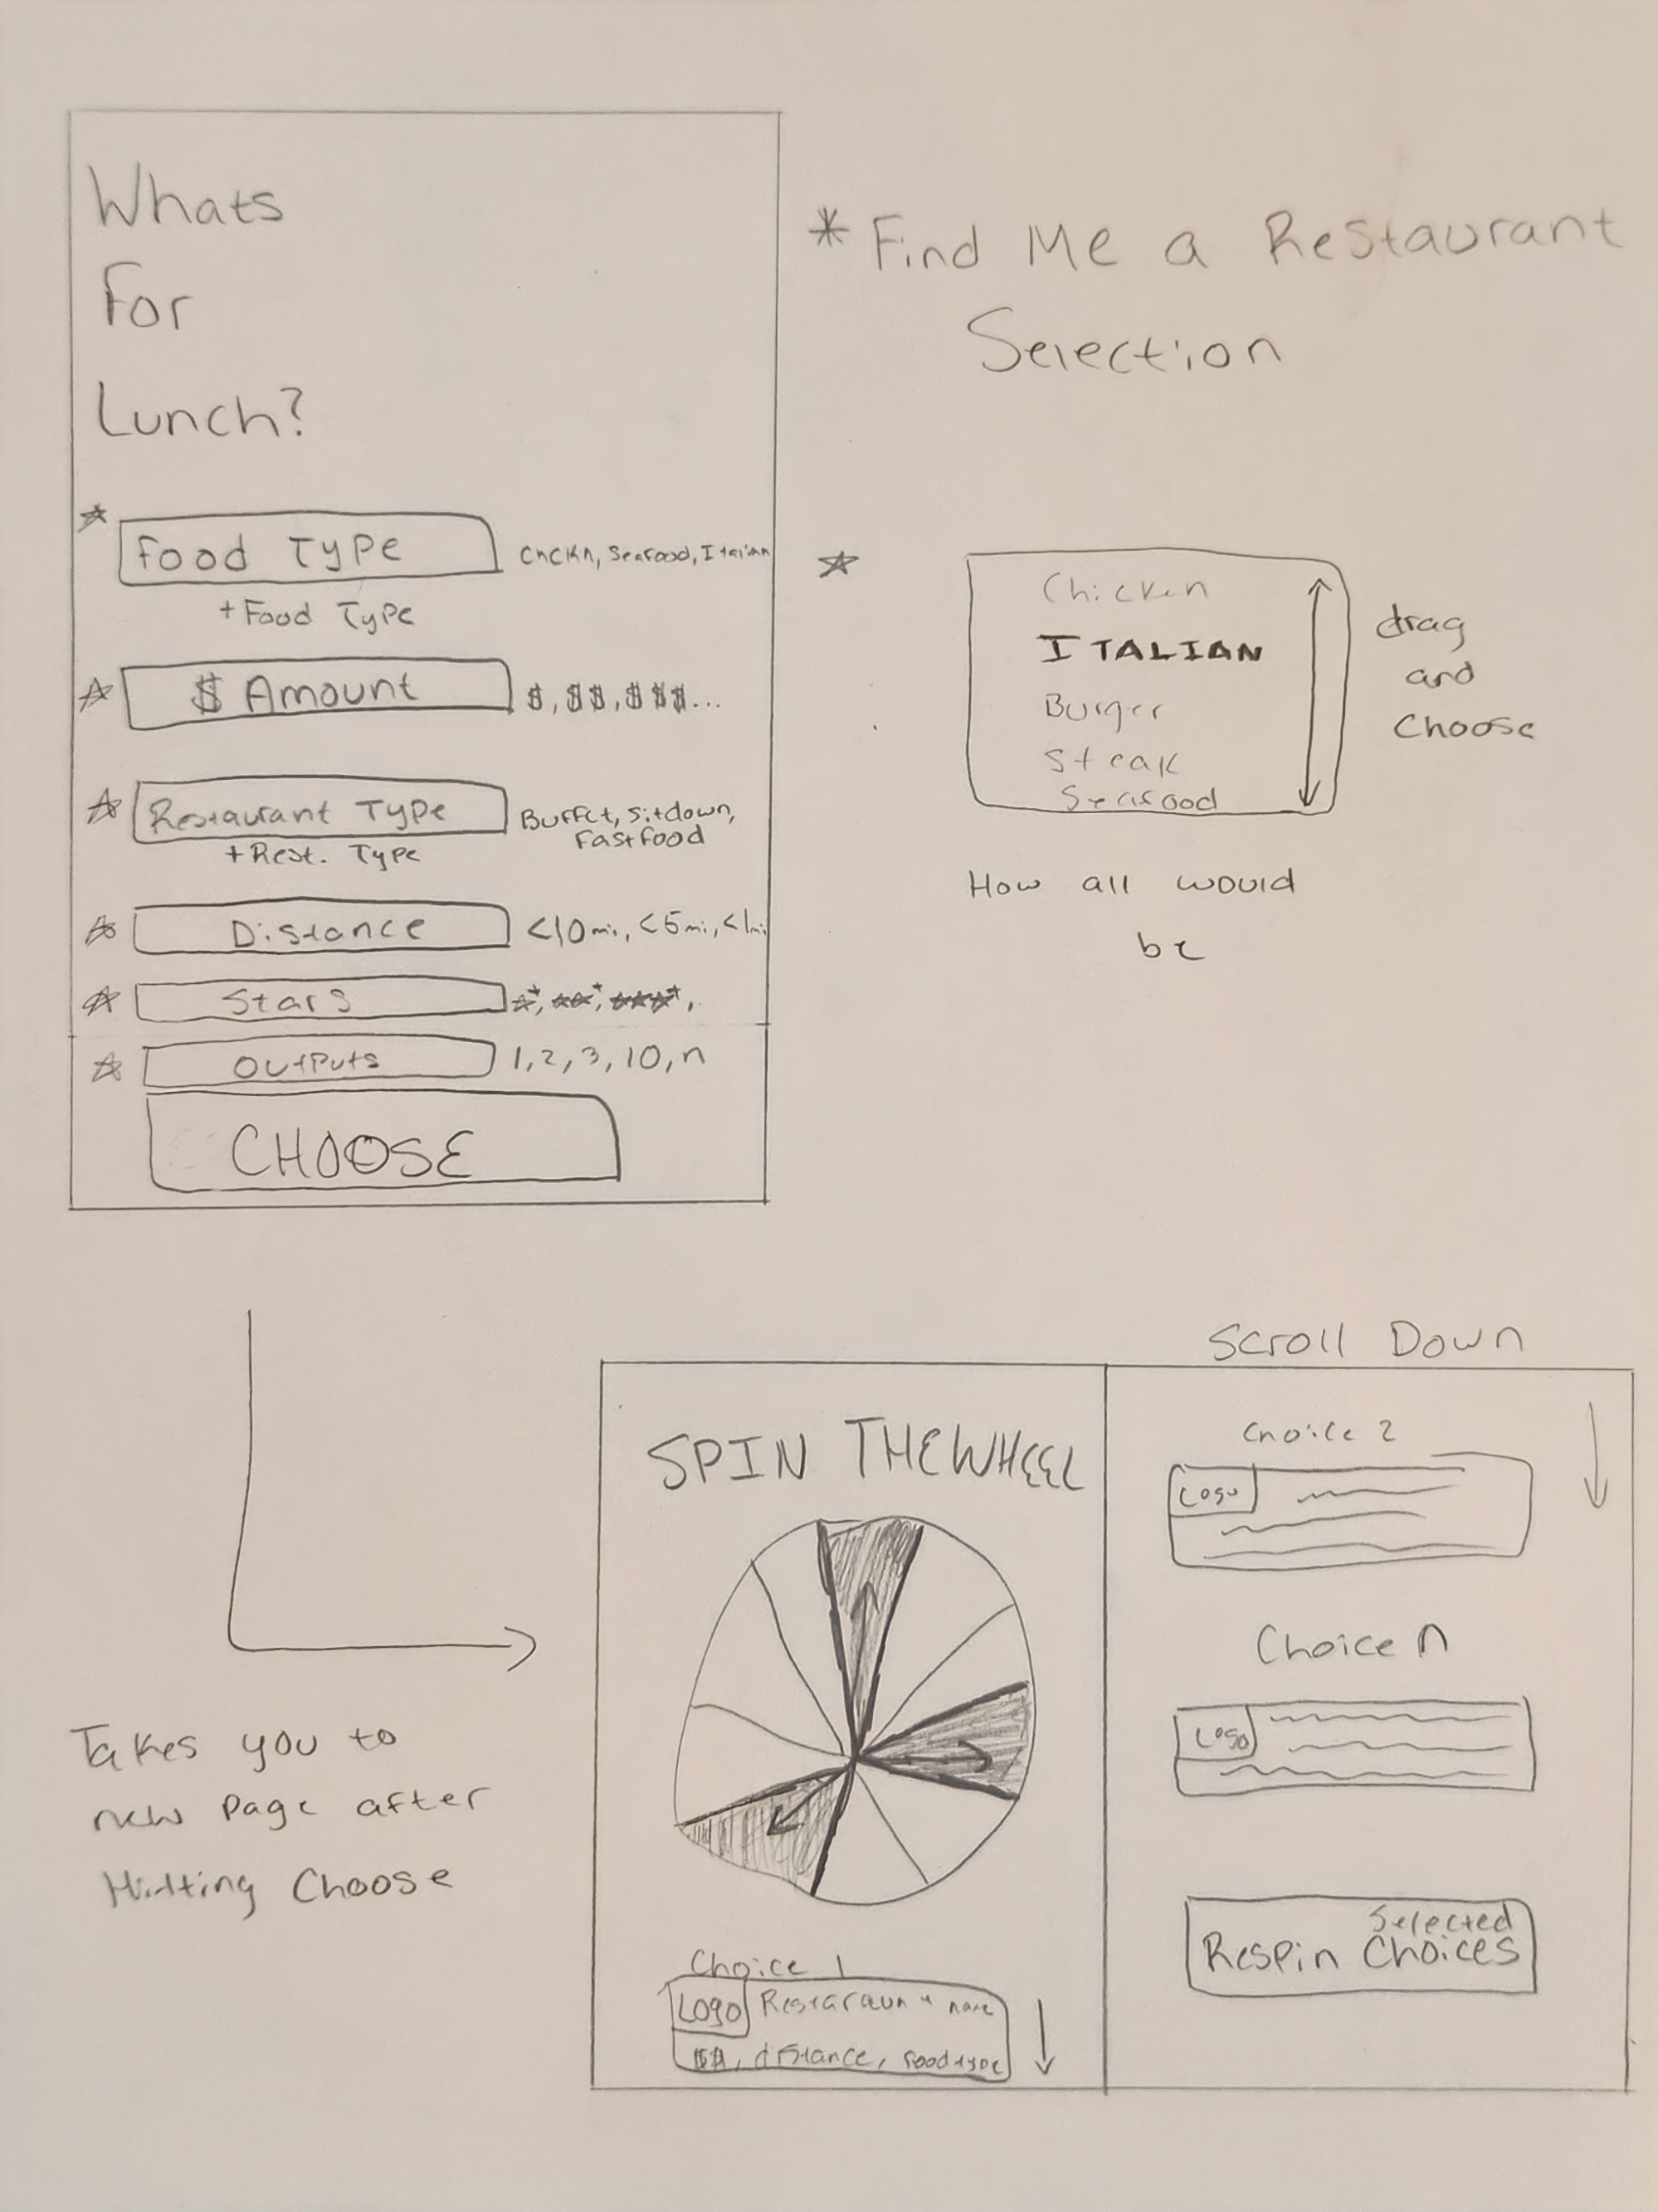 Whats
For
Lunch?
* Find Me a Restaurant
Selection
Food Type
Chckn, Seafood, Italian
+ Food Type
$ Amount
$, $$, $$$...
Restaurant Type
Buffet, Sitdown,
Fastfood
+ Rest. Type
Distance
<10mi, <5mi, <1mi
Stars
★+, ★★+, ★★★+,
Outputs
1, 2, 3, 10, n
CHOOSE
Chicken
ITALIAN
Burger
Steak
Seafood
drag
and
Choose
How all would
be
Takes you to
new page after
Hitting Choose
SPIN THE WHEEL
Choice 1
Logo
Restaraunt name
$$, distance, food type
Scroll Down
Choice 2
Logo
Choice n
Logo
Selected
Respin Choices